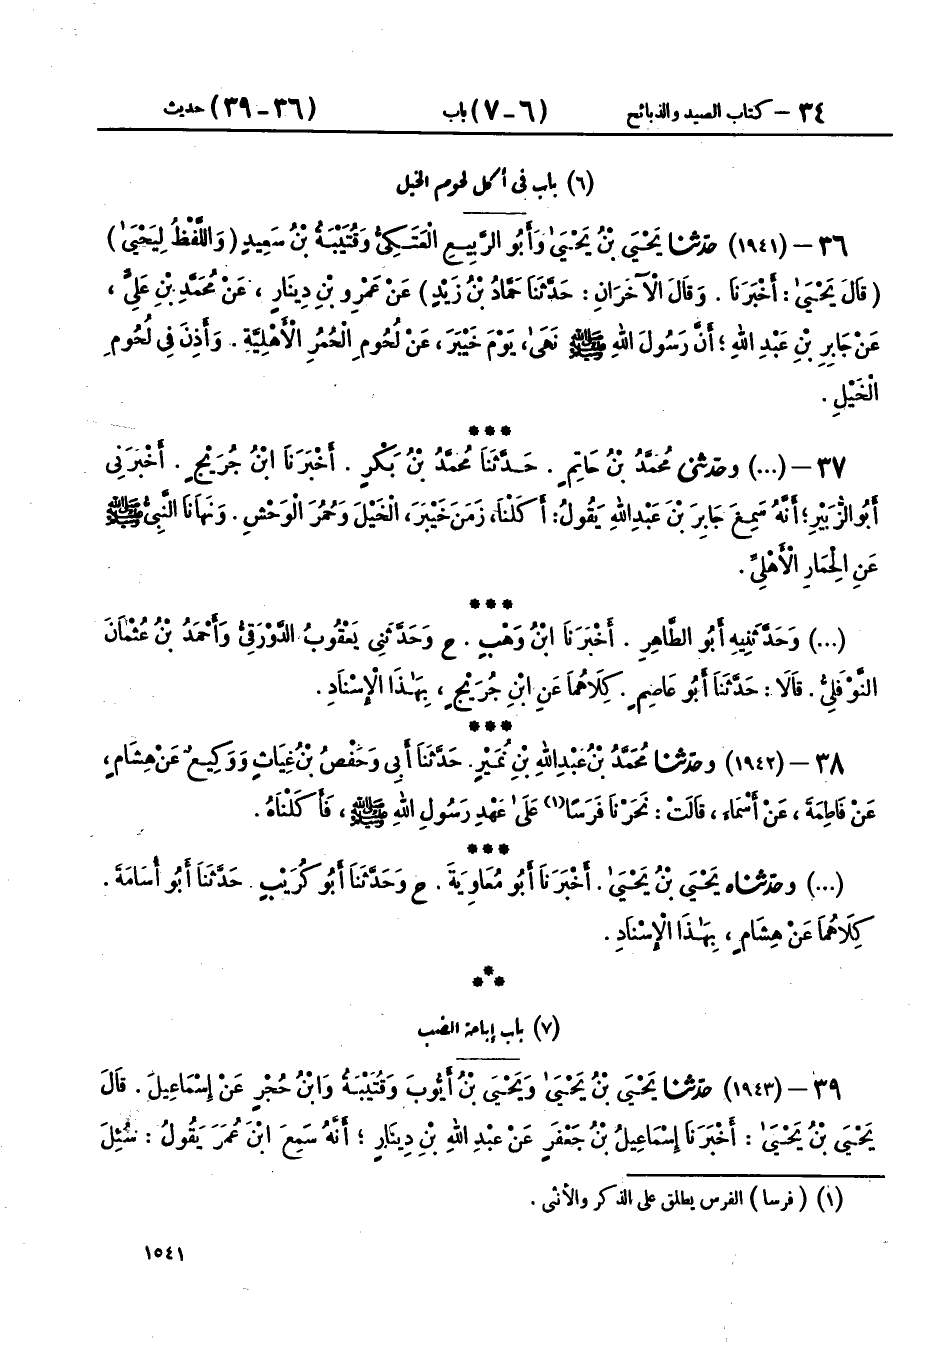 ٣٤ – كتاب الصيد والذبائح (٦-٧) باب (٣٦-٣٩) حديث
(٦) باب فى أكل لحوم الخيل
٣٦ – (١٩٤١) حدثنا يَحْيَى بْنُ يَحْيَىٰ وَأَبُو الرَّبِيعِ الْعَتَكِىُّ وَقُتَيْبَةُ بْنُ سَعِيدٍ (وَاللَّفْظُ لِيَحْيَىٰ)
(قَالَ يَحْيَىٰ: أَخْبَرَنَا . وَقَالَ الْآخَرَانِ: حَدَّثَنَا حَمَّادُ بْنُ زَيْدٍ) عَنْ عَمْرِو بْنِ دِينَارٍ ، عَنْ مُحَمَّدِ بْنِ عَلِىٍّ ،
عَنْ جَابِرِ بْنِ عَبْدِ اللهِ ؛ أَنَّ رَسُولَ اللهِ ﷺ نَهَىٰ، يَوْمَ خَيْبَرَ، عَنْ لُحُومِ الْحُمُرِ الْأَهْلِيَّةِ . وَأَذِنَ فِى لُحُومِ
الْخَيْلِ .
***
٣٧ – (...) وحدثنى مُحَمَّدُ بْنُ حَاتِمٍ . حَدَّثَنَا مُحَمَّدُ بْنُ بَكْرٍ . أَخْبَرَنَا ابْنُ جُرَيْجٍ . أَخْبَرَنِى
أَبُو الزُّبَيْرِ؛ أَنَّهُ سَمِعَ جَابِرَ بْنَ عَبْدِ اللهِ يَقُولُ: أَكَلْنَا، زَمَنَ خَيْبَرَ، الْخَيْلَ وَحُمُرَ الْوَحْشِ . وَنَهَانَا النَّبِىُّ ﷺ
عَنِ الْحِمَارِ الْأَهْلِىِّ .
***
(...) وَحَدَّثَنِيهِ أَبُو الطَّاهِرِ . أَخْبَرَنَا ابْنُ وَهْبٍ . ح وَحَدَّثَنِى يَعْقُوبُ الدَّوْرَقِىُّ وَأَحْمَدُ بْنُ عُثْمَانَ
النَّوْفَلِىُّ . قَالَا : حَدَّثَنَا أَبُو عَاصِمٍ . كِلَاهُمَا عَنِ ابْنِ جُرَيْجٍ ، بِهَٰذَا الْإِسْنَادِ .
***
٣٨ – (١٩٤٢) وحدثنا مُحَمَّدُ بْنُ عَبْدِ اللهِ بْنِ نُمَيْرٍ. حَدَّثَنَا أَبِى وَحَفْصُ بْنُ غِيَاثٍ وَوَكِيعٌ عَنْ هِشَامٍ،
عَنْ فَاطِمَةَ ، عَنْ أَسْمَاءَ ، قَالَتْ : نَحَرْنَا فَرَسًا(١) عَلَىٰ عَهْدِ رَسُولِ اللهِ ﷺ ، فَأَكَلْنَاهُ .
***
(...) وحدثناه يَحْيَى بْنُ يَحْيَىٰ . أَخْبَرَنَا أَبُو مُعَاوِيَةَ . ح وَحَدَّثَنَا أَبُو كُرَيْبٍ . حَدَّثَنَا أَبُو أُسَامَةَ .
كِلَاهُمَا عَنْ هِشَامٍ ، بِهَٰذَا الْإِسْنَادِ .
***
(٧) باب إباحة الضب
٣٩ – (١٩٤٣) حدثنا يَحْيَى بْنُ يَحْيَىٰ وَيَحْيَى بْنُ أَيُّوبَ وَقُتَيْبَةُ وَابْنُ حُجْرٍ عَنْ إِسْمَاعِيلَ . قَالَ
يَحْيَى بْنُ يَحْيَىٰ : أَخْبَرَنَا إِسْمَاعِيلُ بْنُ جَعْفَرٍ عَنْ عَبْدِ اللهِ بْنِ دِينَارٍ ؛ أَنَّهُ سَمِعَ ابْنَ عُمَرَ يَقُولُ : سُئِلَ
(١) (فرسا) الفرس يطلق على الذكر والأنثى .
١٥٤١